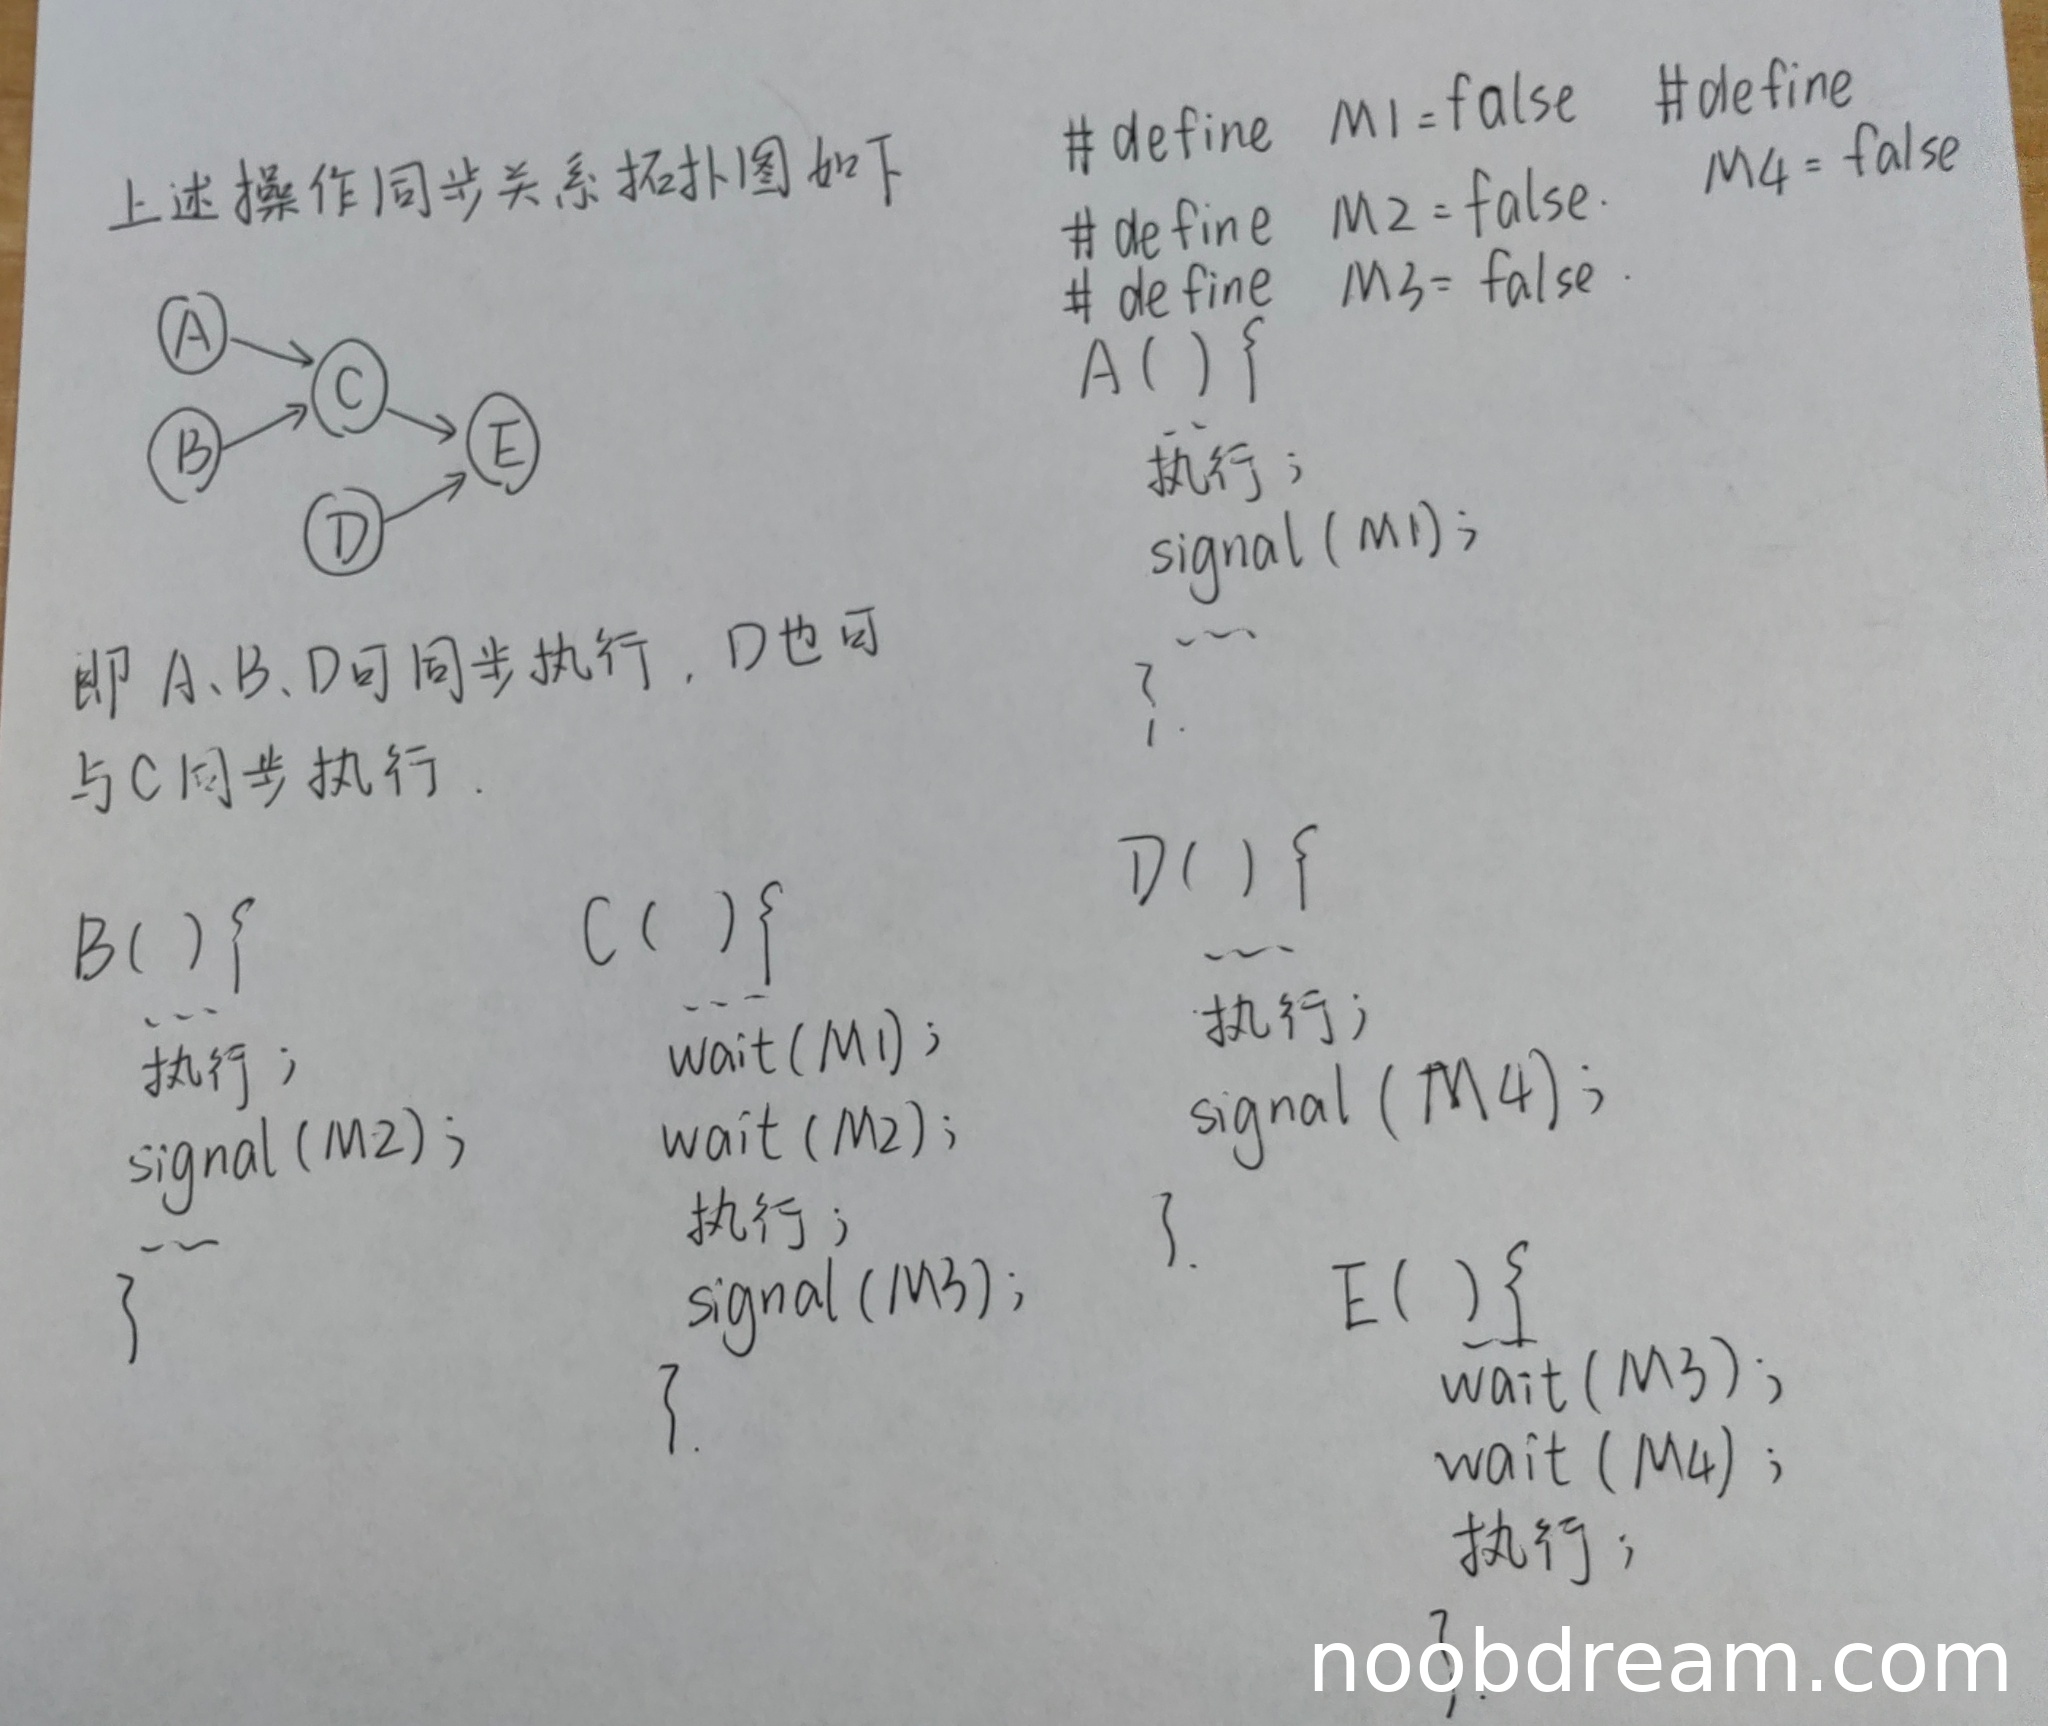 上述操作同步关系拓扑图如下
A
B
C
D
E
即 A、B、D可同步执行，D也可
与C同步执行.
#define M1=false
#define M2=false.
#define M3=false.
#define
M4=false
A(){
...
执行;
signal(M1);
...
}.
B(){
...
执行;
signal(M2);
...
}
C(){
...
wait(M1);
wait(M2);
执行;
signal(M3);
}.
D(){
...
执行;
signal(M4);
}.
E(){
...
wait(M3);
wait(M4);
执行;
}.
noobdream.com